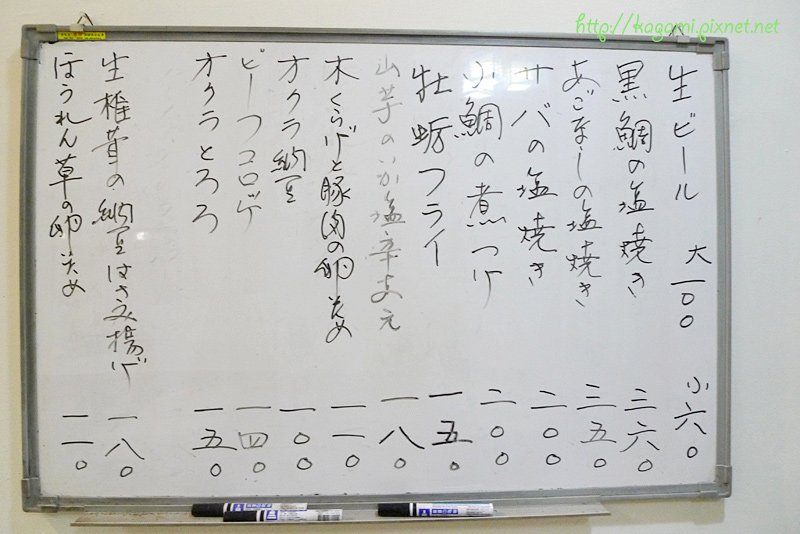 http://kagami.pixnet.net
生ビール 大一〇〇 小六〇
黒鯛の塩焼き 三六〇
あごなしの塩焼き 三五〇
サバの塩焼き 二〇〇
小鯛の煮つけ 二〇〇
牡蛎フライ 一五〇
山芋のいか塩辛あえ 一八〇
木くらげと豚肉の卵いため 一一〇
オクラ納豆 一〇〇
ビーフコロッケ 一四〇
オクラとろろ 一五〇
生椎茸の納豆はさみ揚げ 一八〇
ほうれん草の卵いため 一一〇